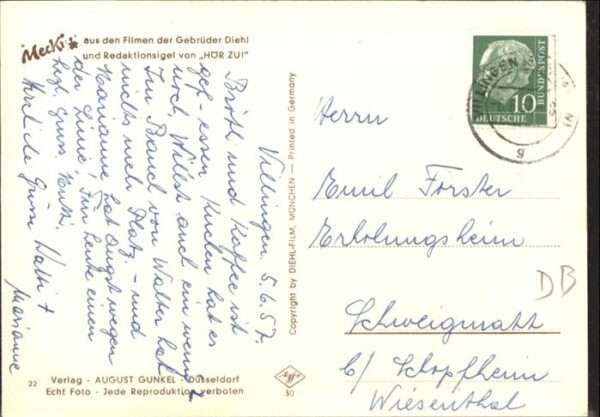 Mecki aus den Filmen der Gebrüder Diehl
und Redaktionsigel von „HÖR ZU!"
Villingen, 5.6.57.
Brötli und Kaffee ist
gef-essen, Kuchen hat es
noch, Willst auch ein wenig?
Im Bauch von Walter hat
nichts mehr Platz, - und
Marianne hat Angst wegen
der Linie, Für heute einen
hzl. Gruss
Grüsse Walti +
Marianne
Copyright by DIEHL-FILM, MÜNCHEN — Printed in Germany
22
Verlag - AUGUST GUNKEL - Düsseldorf
Echt Foto - Jede Reproduktion verboten
50
10
DEUTSCHE
BUNDESPOST
VILLINGEN
Herrn
Emil Forster
Erholungsheim
Schweigmatt
b/ Schopfheim
Wiesenthal
DB